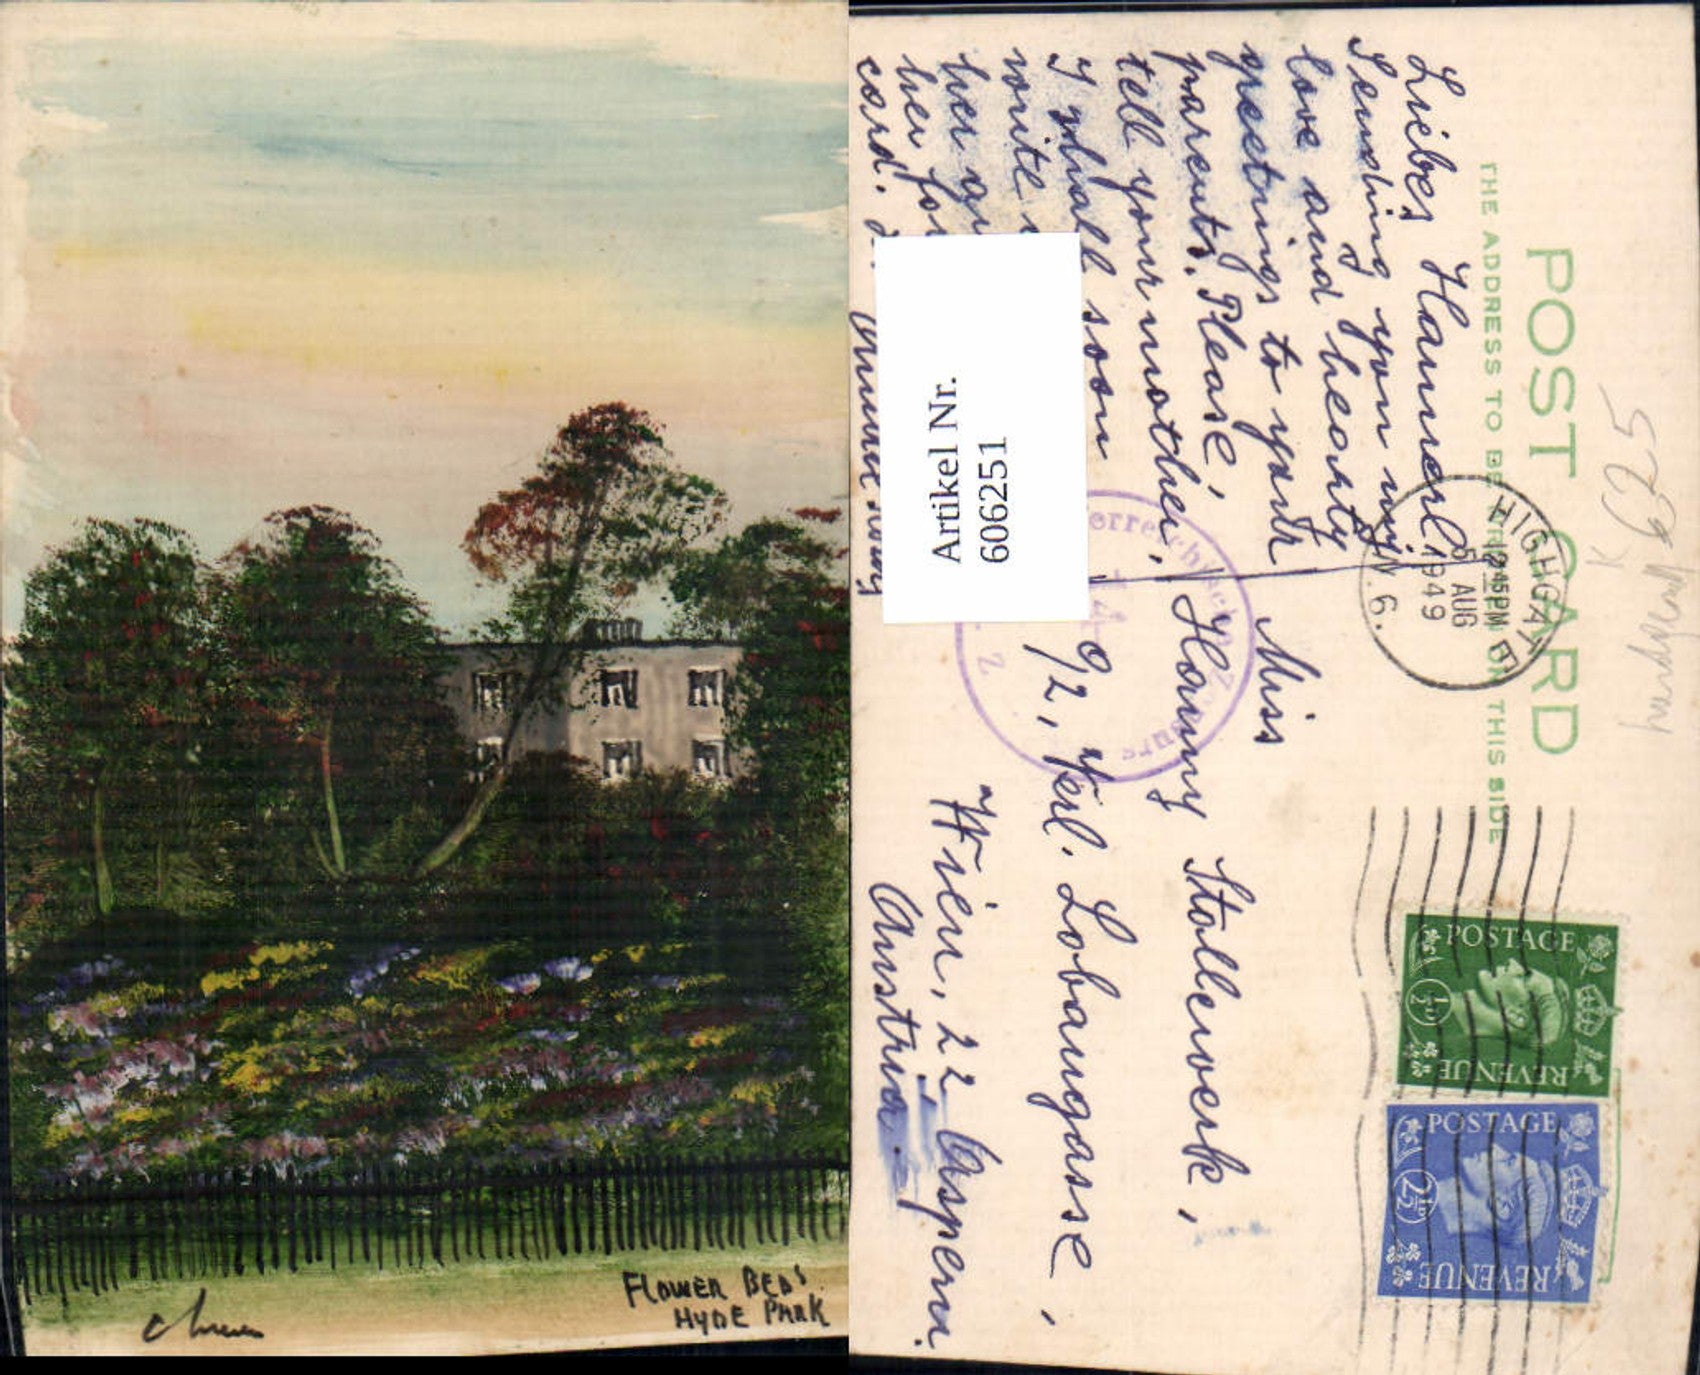 FLOWER BEDS
HYDE PARK
POST CARD
THE ADDRESS TO BE WRITTEN ON THIS SIDE
HIGHGATE
12 45 PM
5 AUG
1949
N. 6.
K 625
handgem
Liebes Hannerl
Sending you my
love and hearty
greetings to your
parents. Please,
tell your mother,
I shall soon
write
her
her for
card.
Artikel Nr.
606251
Miss
Hanny Stollewerk,
9/2, Verl. Lobaugasse,
Wien, 22 Aspern.
Austria.
POSTAGE
½D
REVENUE
POSTAGE
2½D
REVENUE